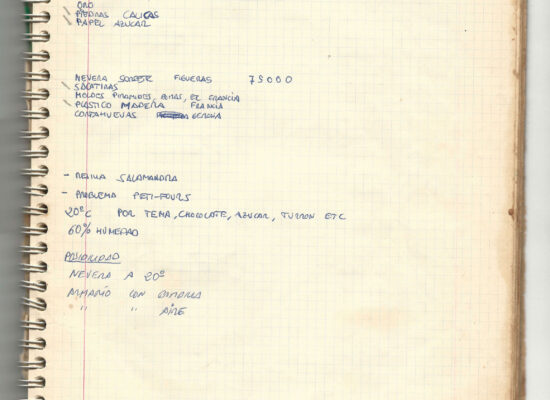 ORO
PIEDRAS CALICAS
PAPEL AZUCAR
NEVERA SORBETE FIGUERAS 75000
GELATINAS
MOLDES PIRAMIDES, EL FRANCIA
PLASTICO MADERA FRANCIA
CORTAHUEVAS GERONA
- RESINA SALAMANDRA
- PROBLEMA PETI-FOURS
20ºC POR TEMA, CHOCOLATE, AZUCAR, TURRON ETC
60% HUMEDAD
POSIBILIDAD
NEVERA A 20º
ARMARIO CON
" " AIRE